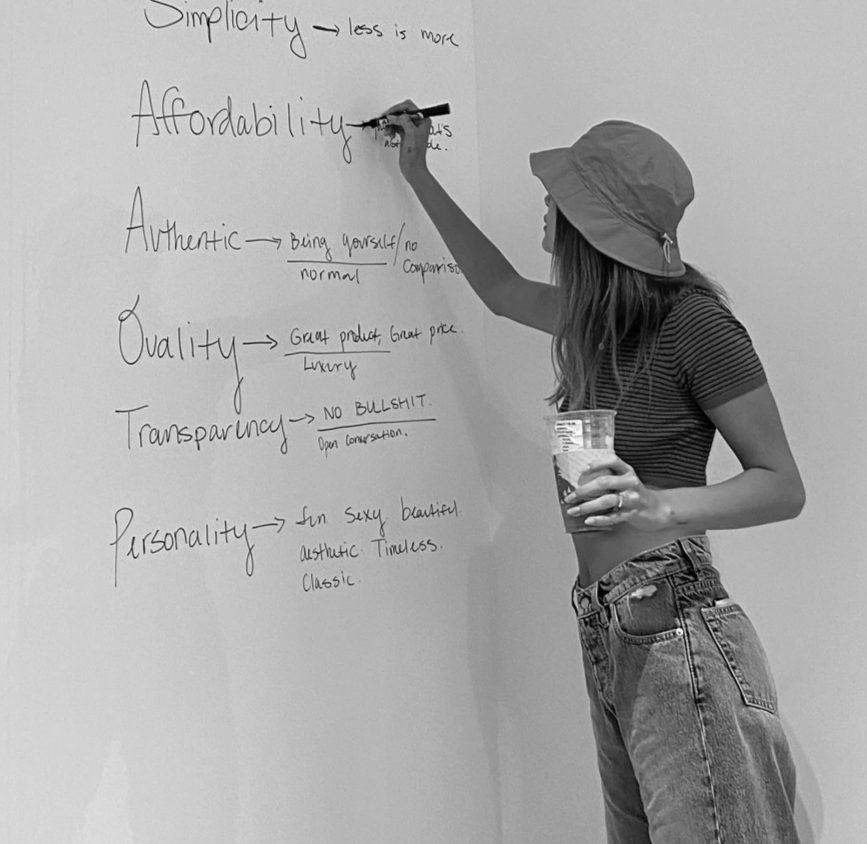 Simplicity → less is more
Affordability →
Authentic → Being yourself/no
normal compariso
Quality → Great product, Great price.
Luxury
Transparency → NO BULLSHIT.
Open conversation.
Personality → fun sexy beautiful
aesthetic. Timeless.
Classic.